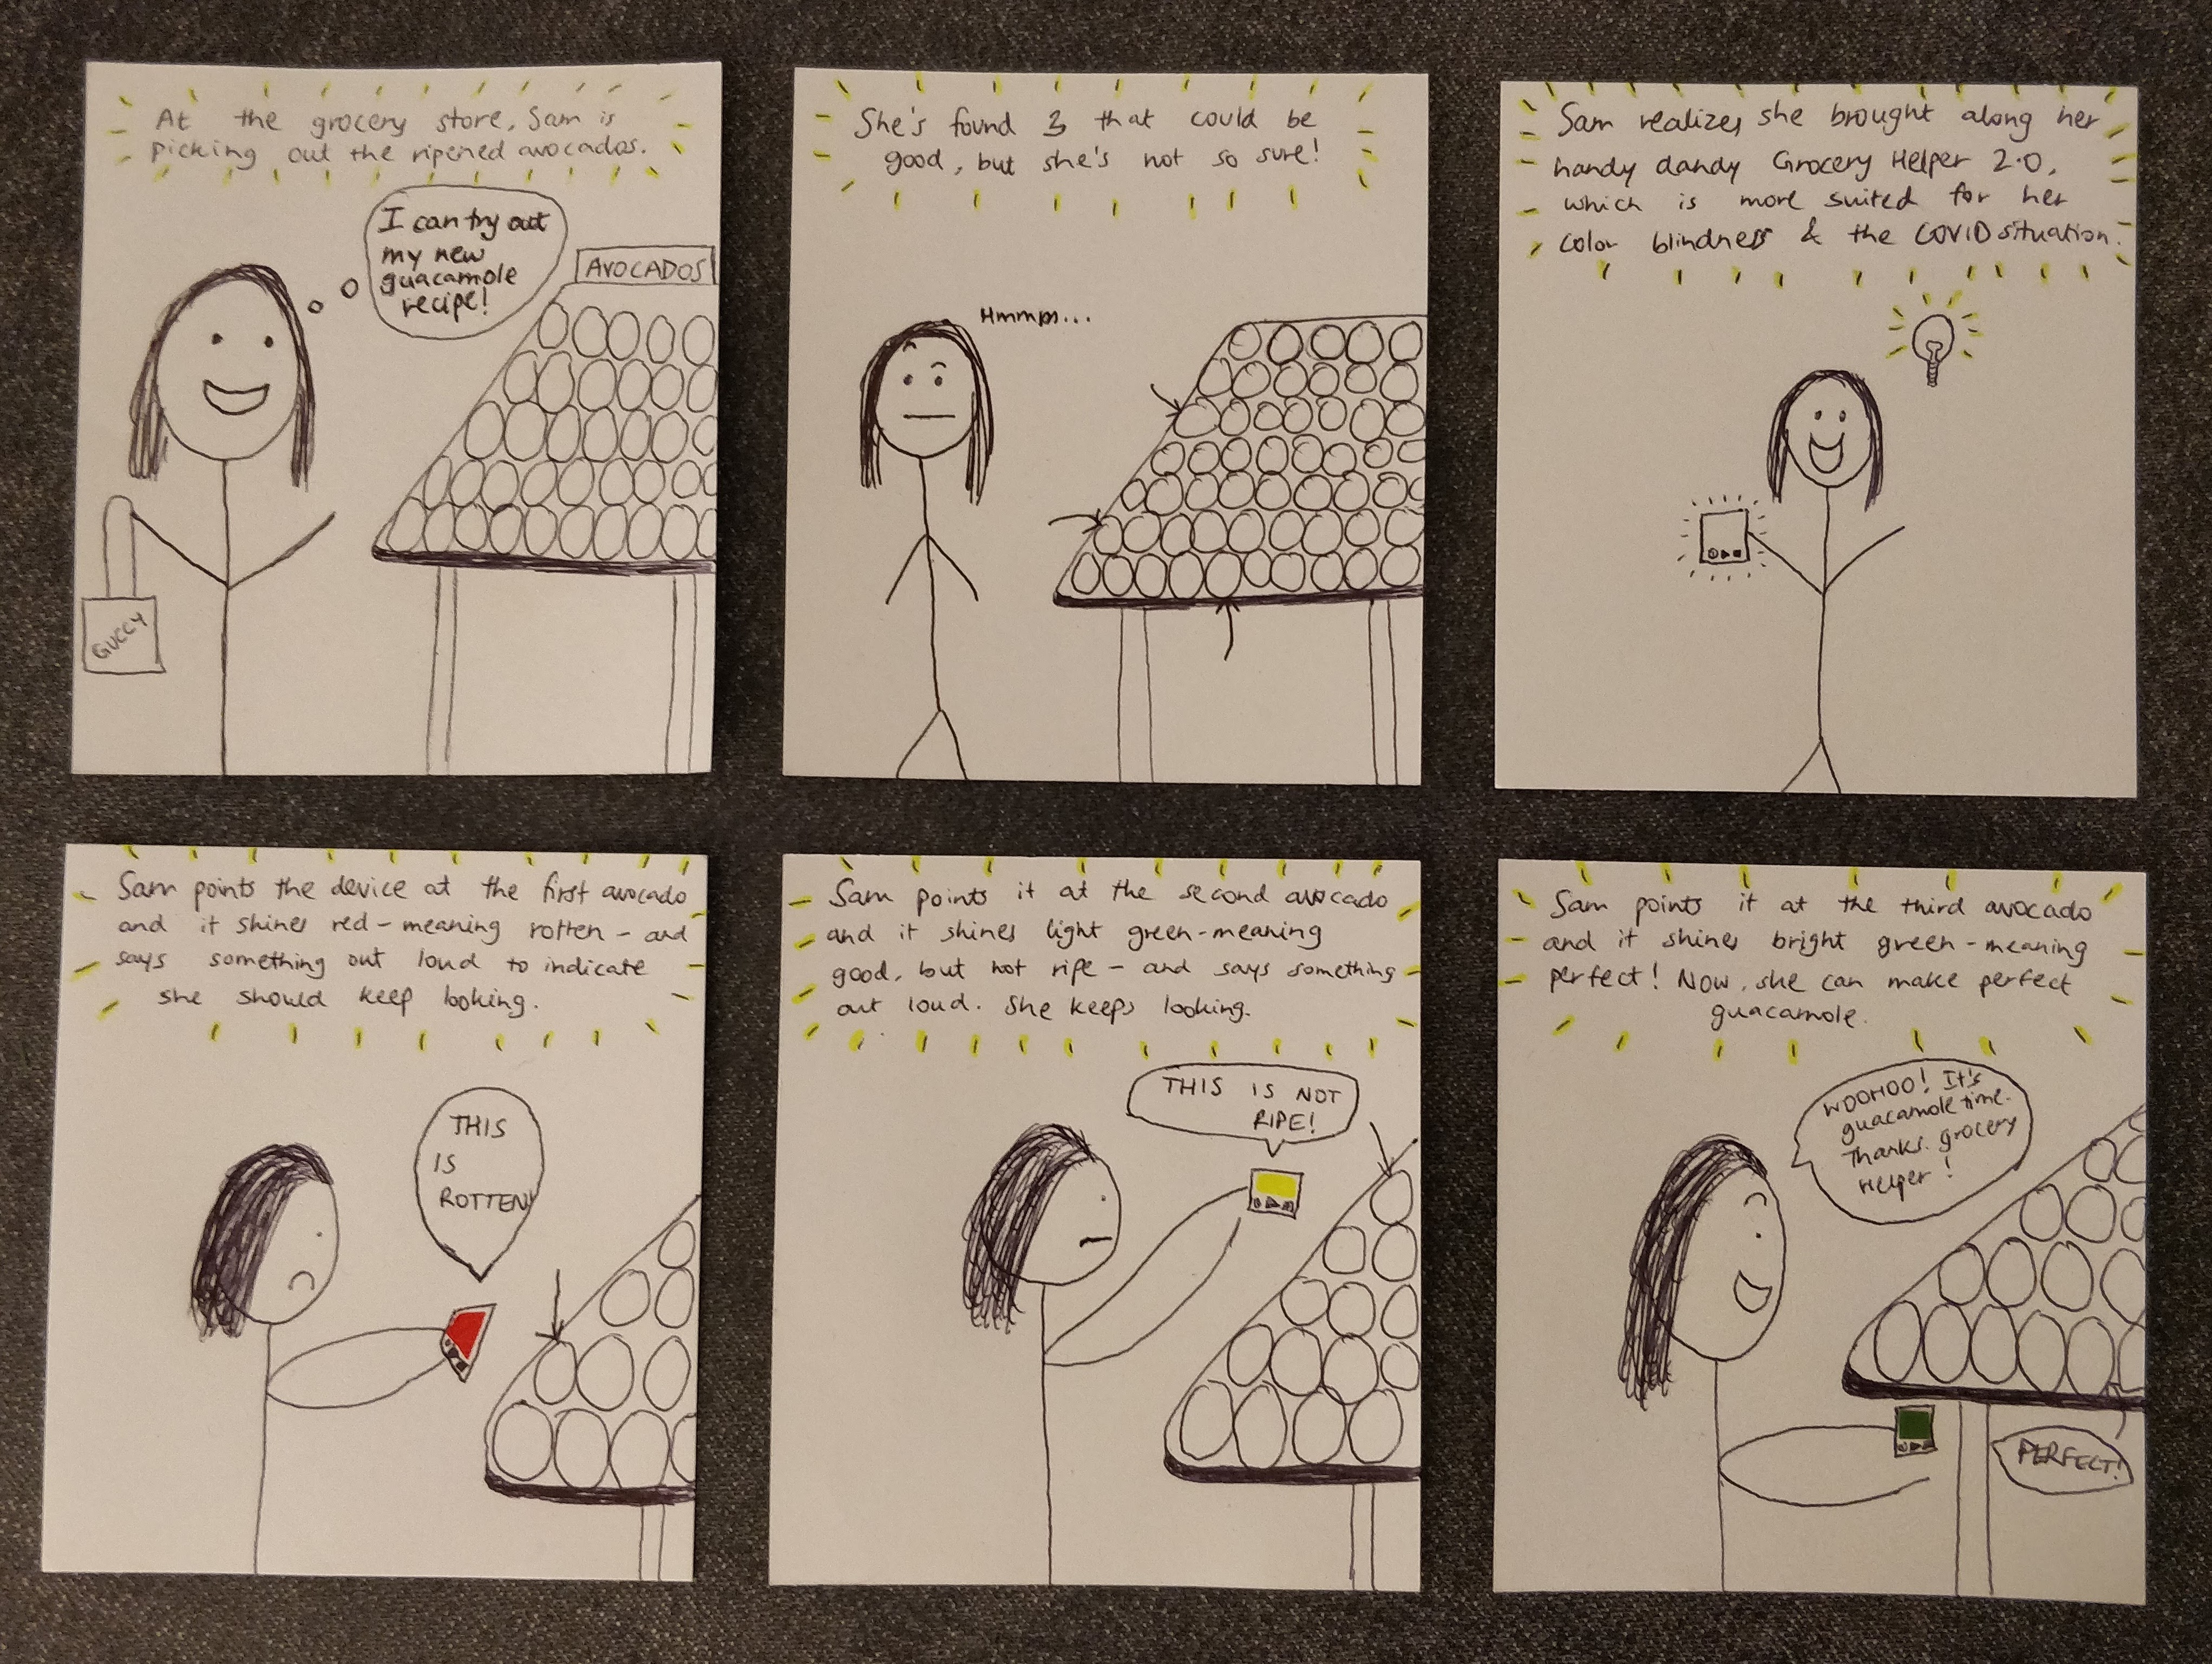 At the grocery store, Sam is
picking out the ripened avocados.
I can try out
my new
guacamole
recipe!
AVOCADOS
GUCCY
She's found 3 that could be
good, but she's not so sure!
Hmmm...
Sam realizes she brought along her
handy dandy Grocery Helper 2.0,
which is more suited for her
color blindness & the COVID situation.
Sam points the device at the first avocado
and it shines red - meaning rotten - and
says something out loud to indicate
she should keep looking.
THIS
IS
ROTTEN!
Sam points it at the second avocado
and it shines light green - meaning
good, but not ripe - and says something
out loud. She keeps looking.
THIS IS NOT
RIPE!
Sam points it at the third avocado
and it shines bright green - meaning
perfect! Now, she can make perfect
guacamole.
WOOHOO! It's
guacamole time.
Thanks, grocery
Helper!
PERFECT!